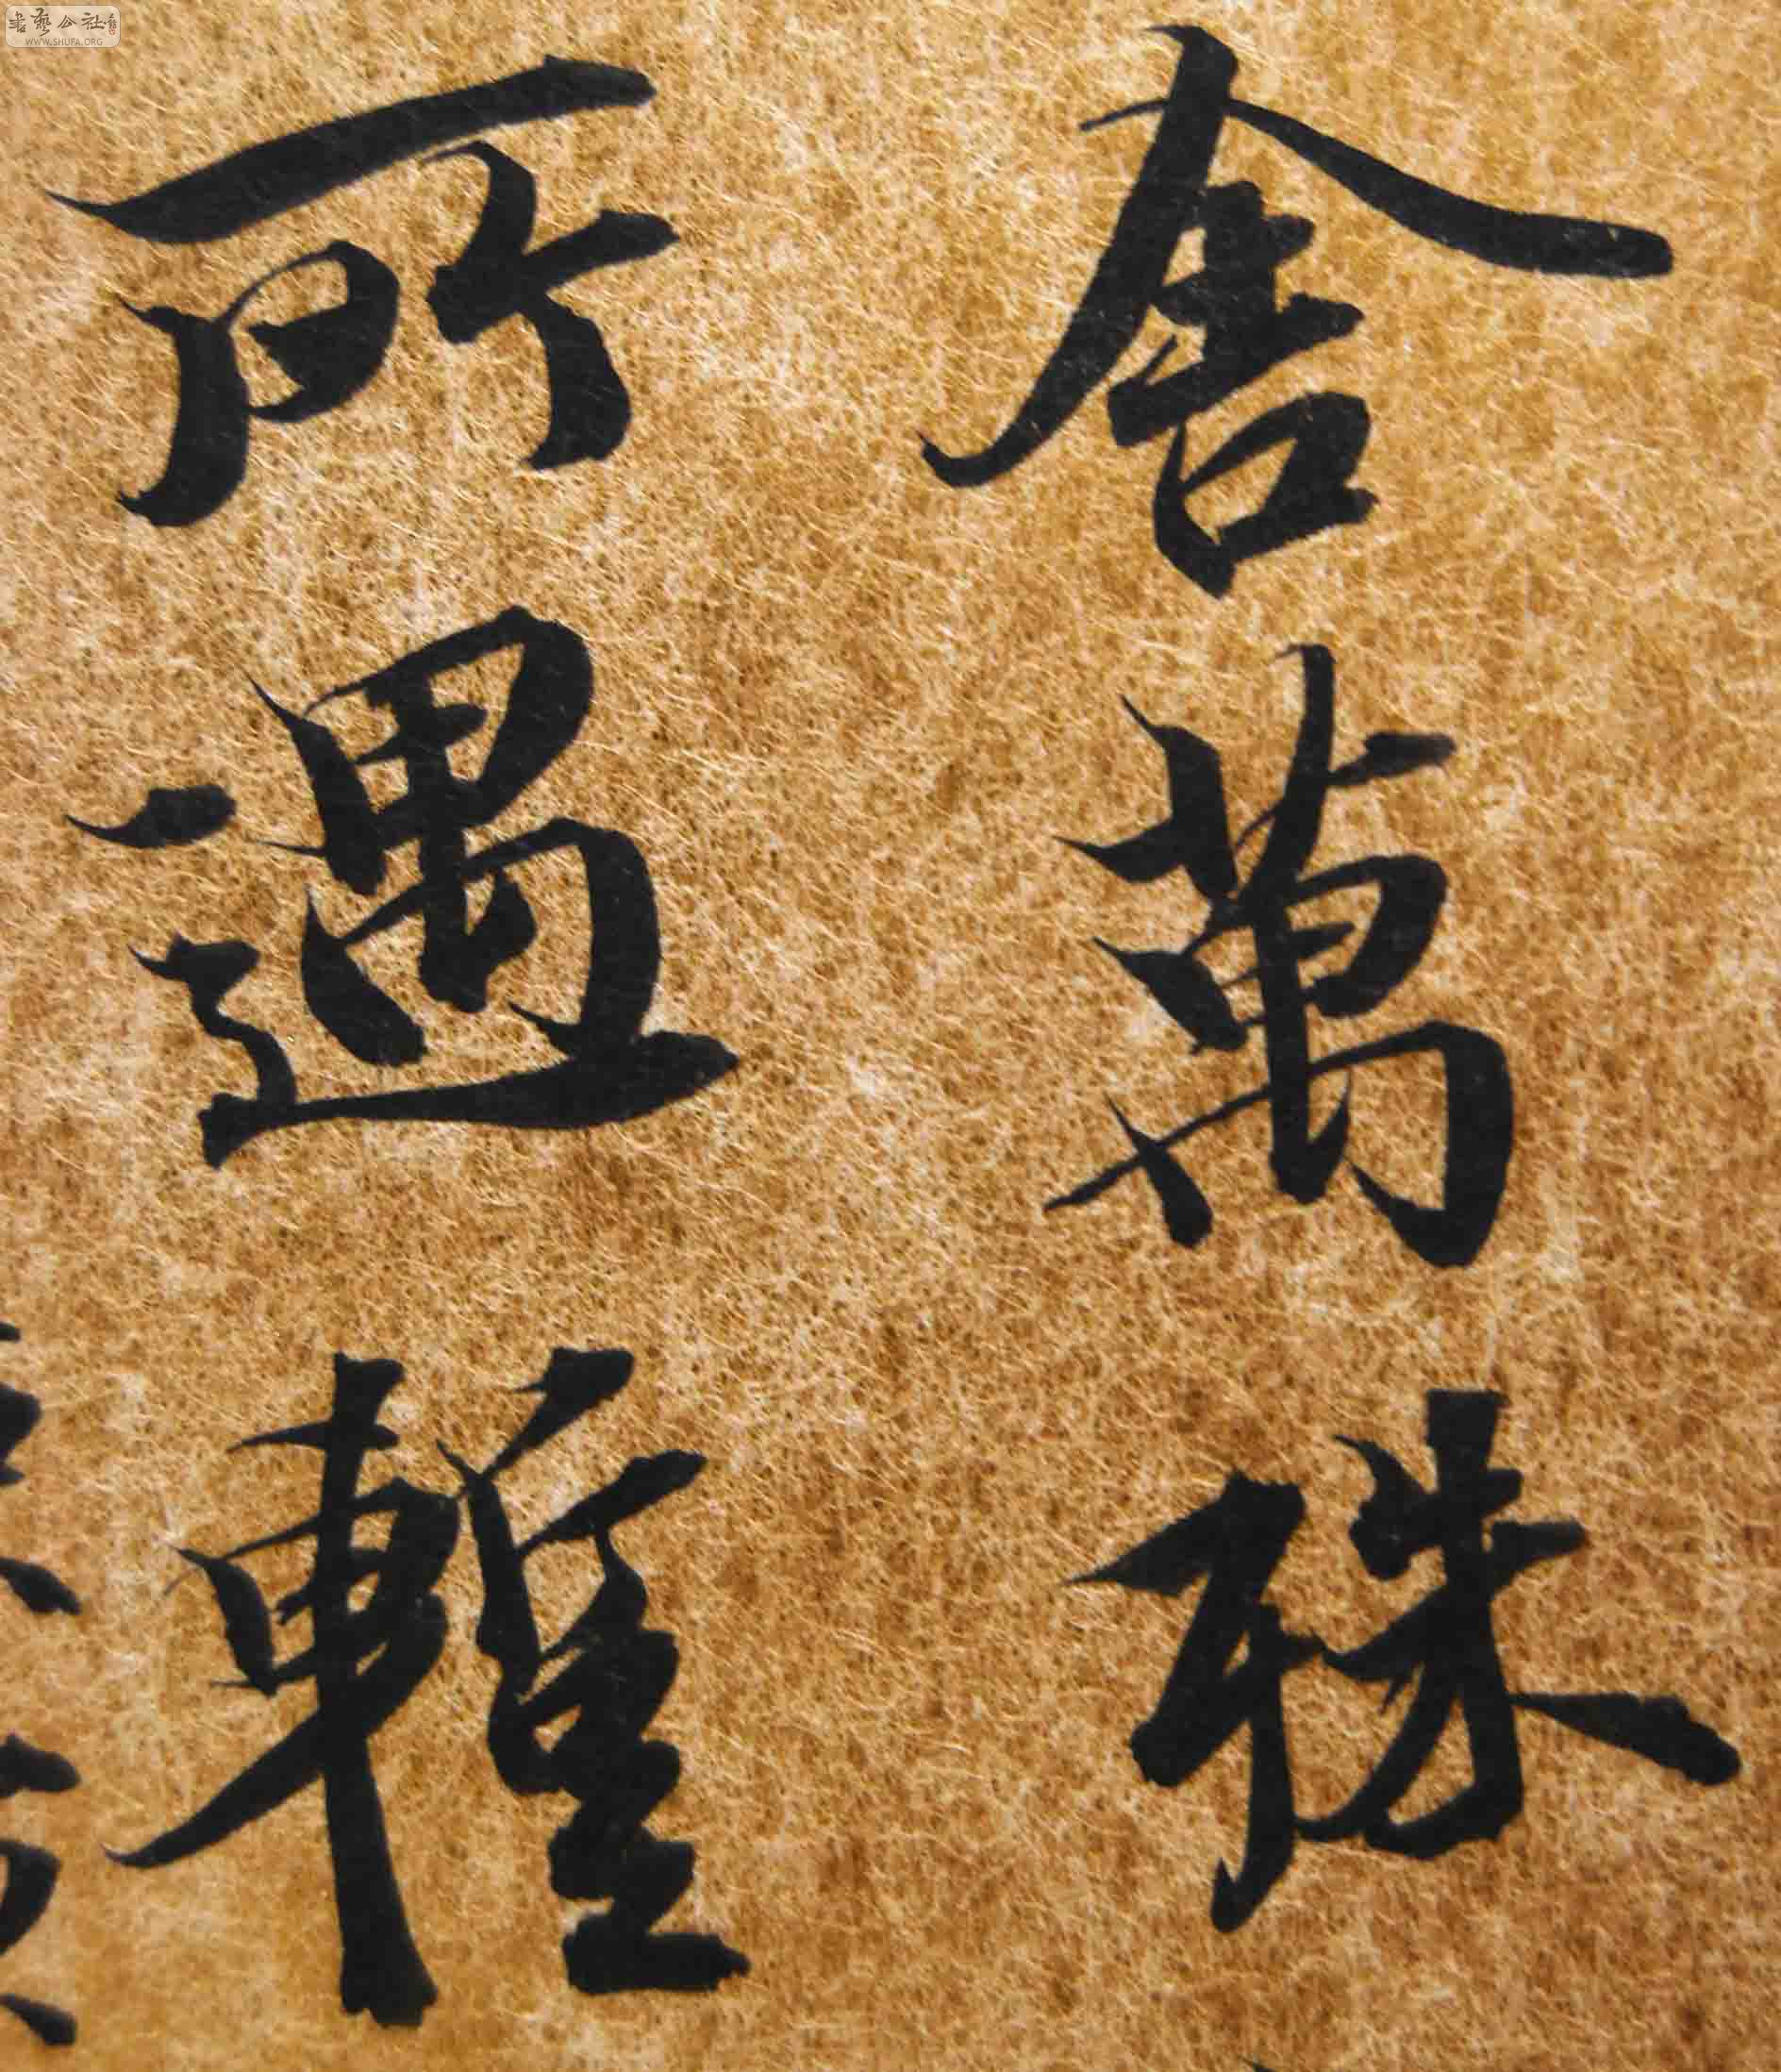 舍萬殊
所遇暫
書藝公社
WWW.SHUFA.ORG